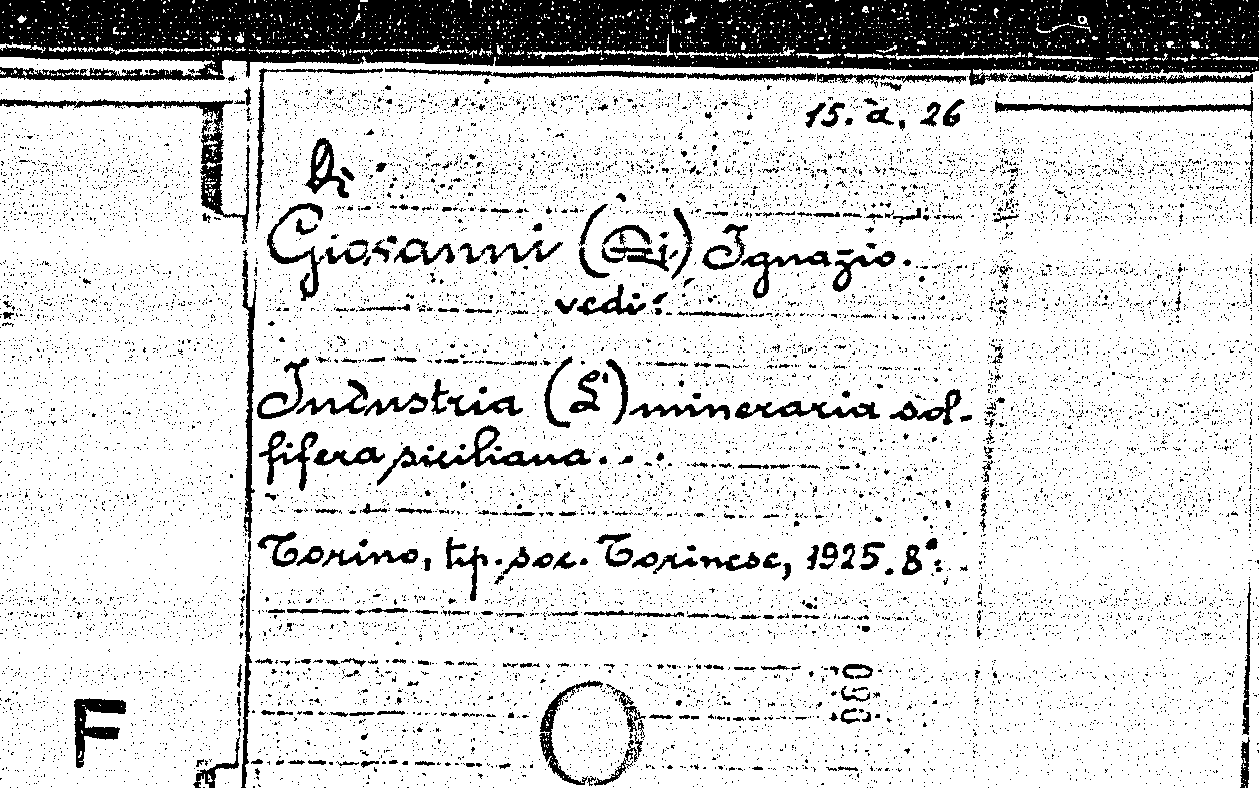 15. a. 26
Di
Giovanni (Di) Ignazio.
vedi:
Industria (L') mineraria sol-
fifera siciliana...
Torino, tip. soc. Torinese, 1925. 8°.
F